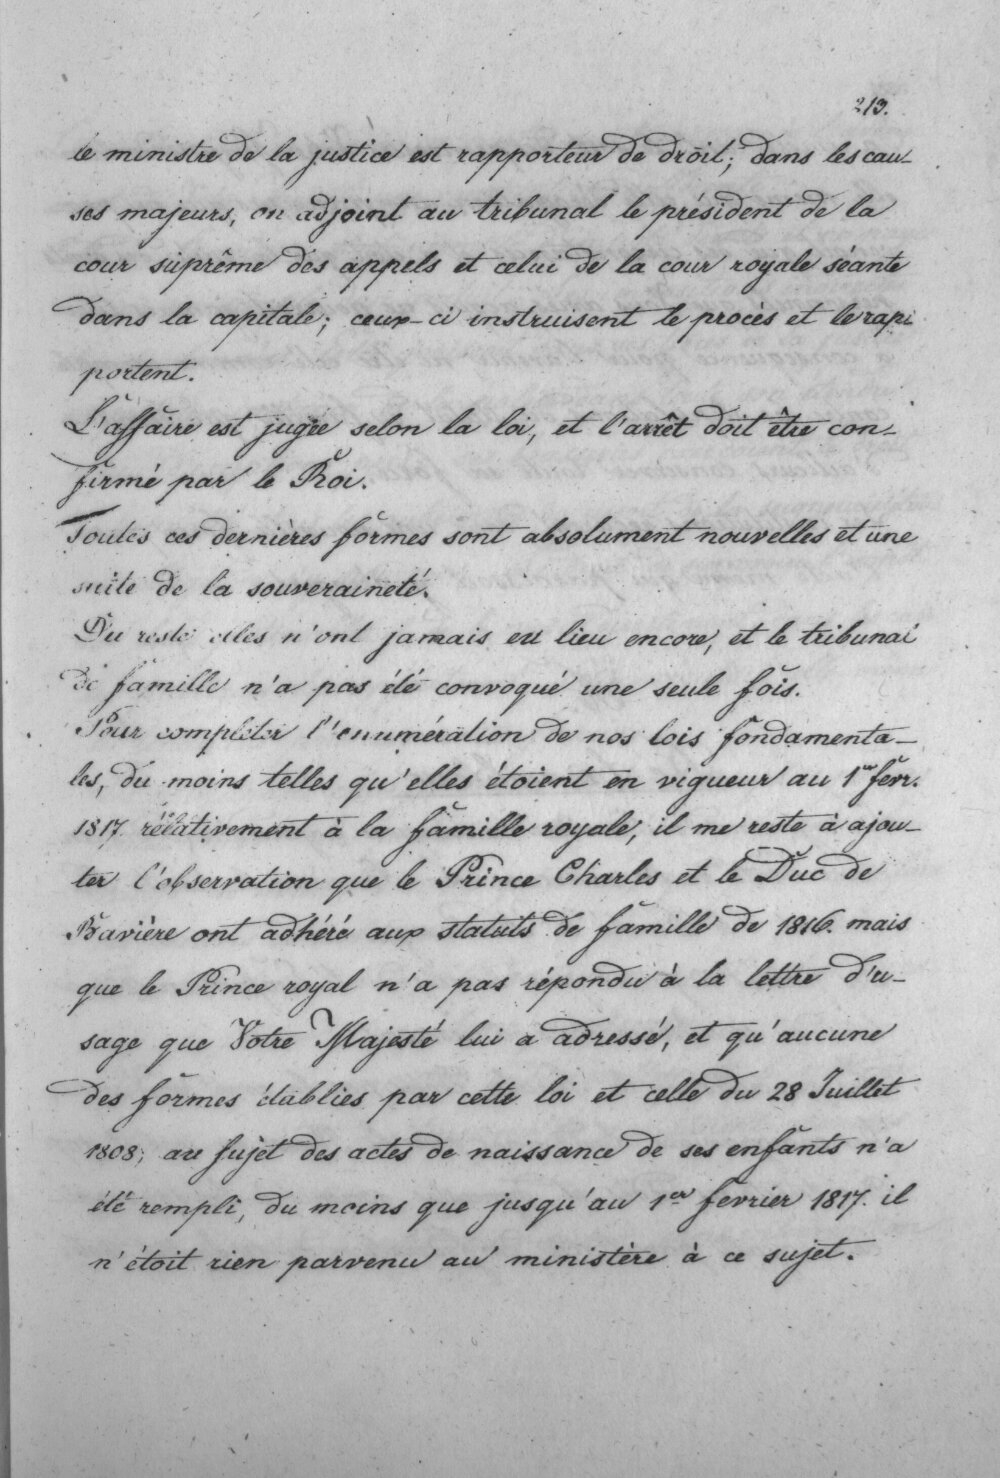 213.
le ministre de la justice est rapporteur de droit; dans les cau-
ses majeurs, on adjoint au tribunal le président de la
cour suprême des appels et celui de la cour royale séante
dans la capitale; ceux-ci instruisent le procès et le rap-
portent.
L'affaire est jugée selon la loi, et l'arrêt doit être con-
firmé par le Roi.
Toutes ces dernières formes sont absolument nouvelles et une
suite de la souveraineté.
Du reste elles n'ont jamais eu lieu encore, et le tribunal
de famille n'a pas été convoqué une seule fois.
Pour completer l'enumération de nos lois fondamenta-
les, du moins telles qu'elles étoient en vigueur au 1er fevr.
1817. rélativement à la famille royale, il me reste à ajou-
ter l'observation que le Prince Charles et le Duc de
Bavière ont adhéré aux statuts de famille de 1816. mais
que le Prince royal n'a pas répondu à la lettre d'u-
sage que Votre Majesté lui a adressé, et qu'aucune
des formes établies par cette loi et celle du 28 Juillet
1808; au sujet des actes de naissance de ses enfants n'a
été rempli, du moins que jusqu'au 1er fevrier 1817. il
n'étoit rien parvenu au ministère à ce sujet.